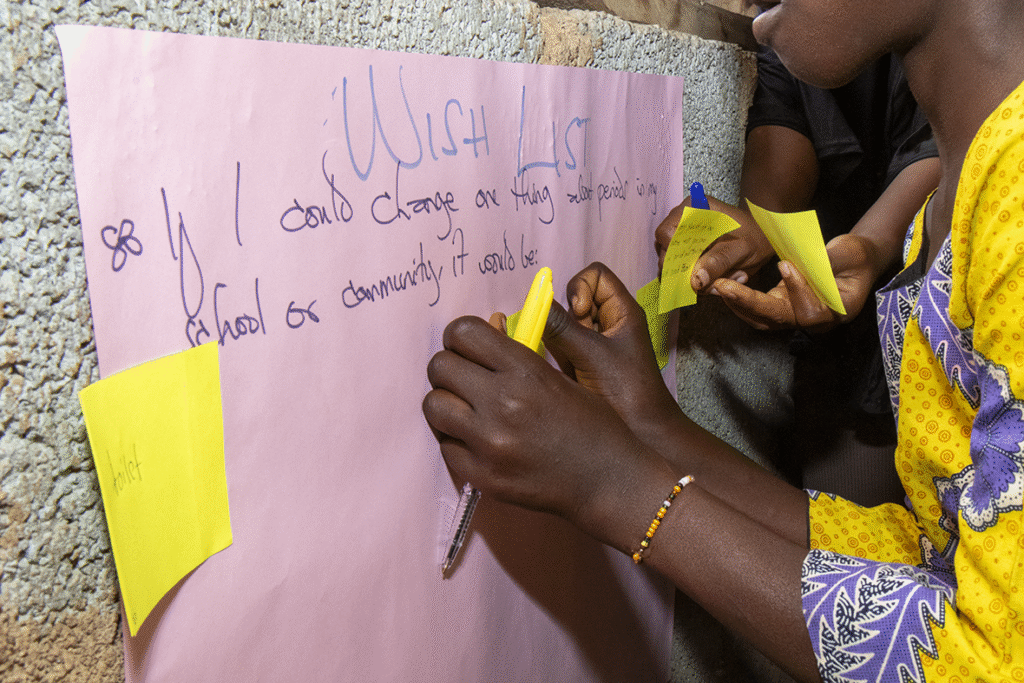 WISH LIST
If I could change one thing about periods in my
school or community, it would be:
toilet